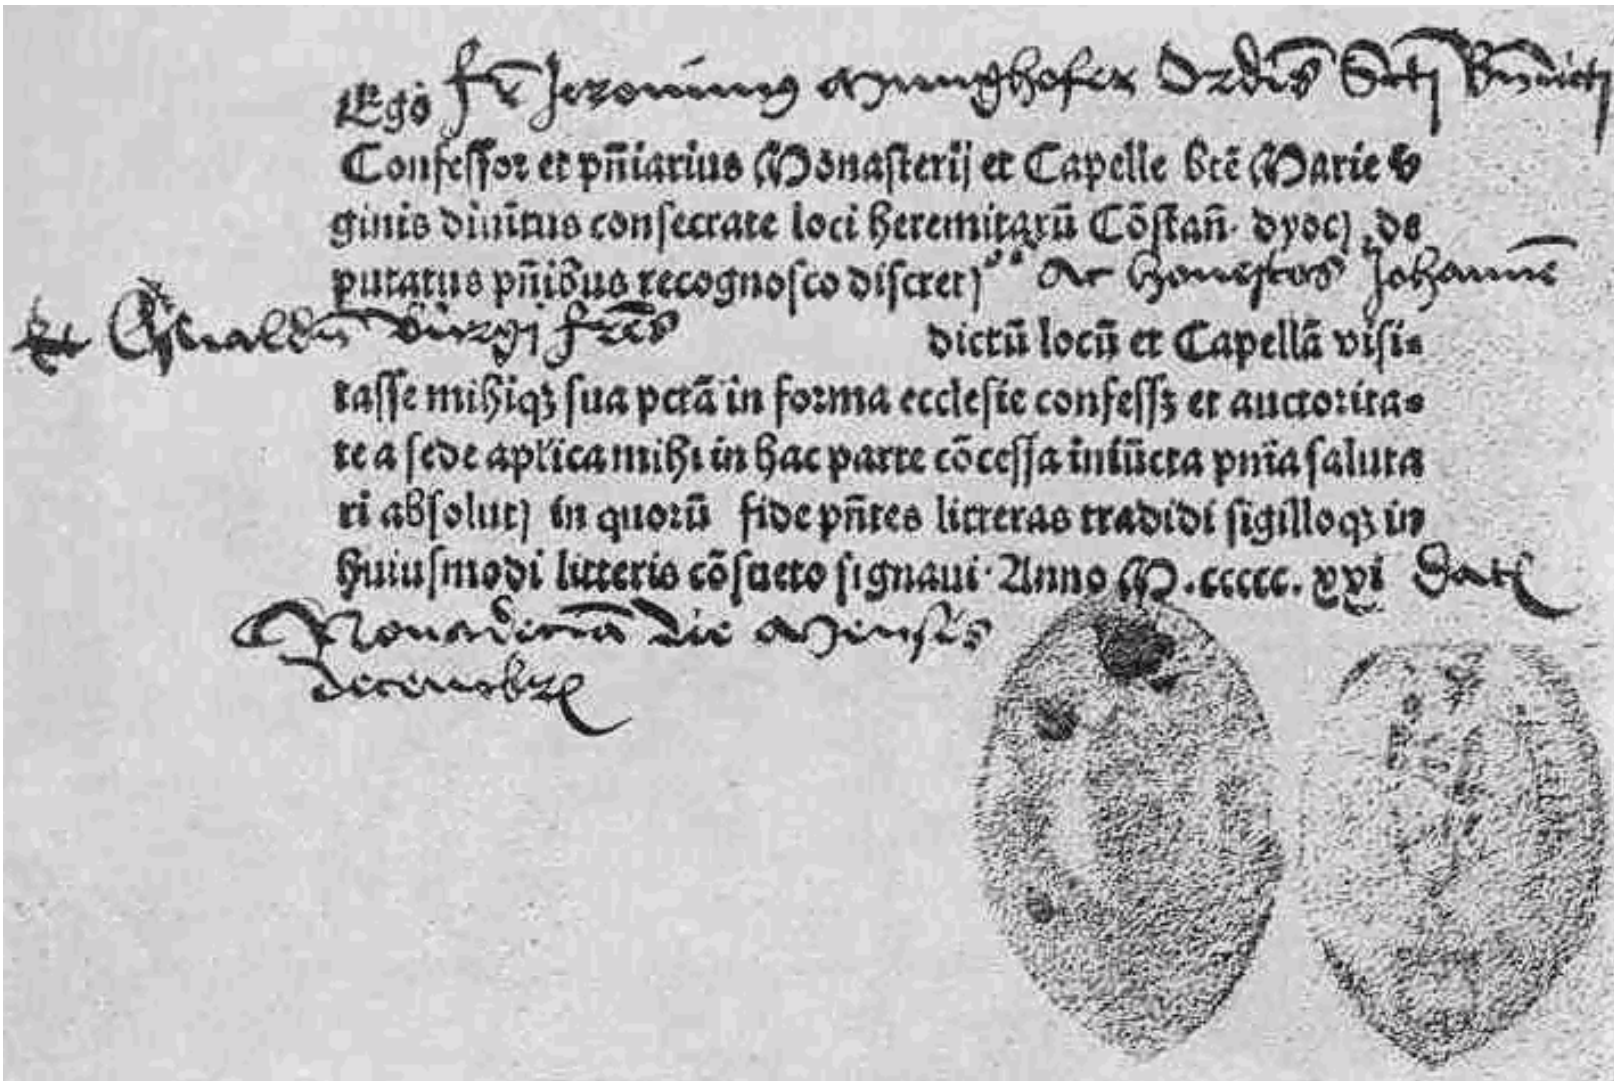 Ego fr̄ Jeronimus Munghofer Ordīs Sctī Bn̄dicti
Confessor et pn̄iarius Monasterij et Capelle btē Marie v
ginis diuītus consecrate loci heremitarū Cōstan̄. dyoc) de
putatus pn̄ibus recognosco discret)os Ac honestos Johannē
et Oswaldū bürgi frēs dictū locū et Capellā visi⸗
tasse mihiqꝫ sua pctā in forma ecclesie confessꝫ et auctorita⸗
te a sede apl̄ica mihi in hac parte cōcessa iniūcta pnīa saluta
ri absolut) in quorū fide pn̄tes litteras tradidi sigilloqꝫ in
huiusmodi litteris cōsueto signaui· Anno M.ccccc.xxi Datꝭ
Nonadecīa die Mensis
decembrꝭ